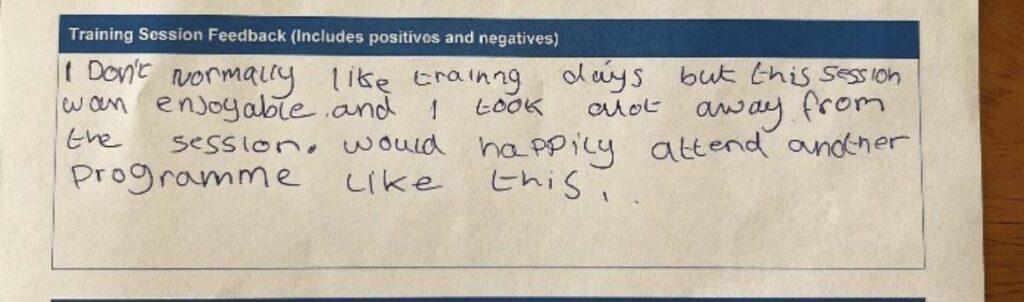 Training Session Feedback (Includes positives and negatives)
I Don't normally like trainng days but this session
wan enjoyable and I took alot away from
the session. would happily attend another
programme like this.